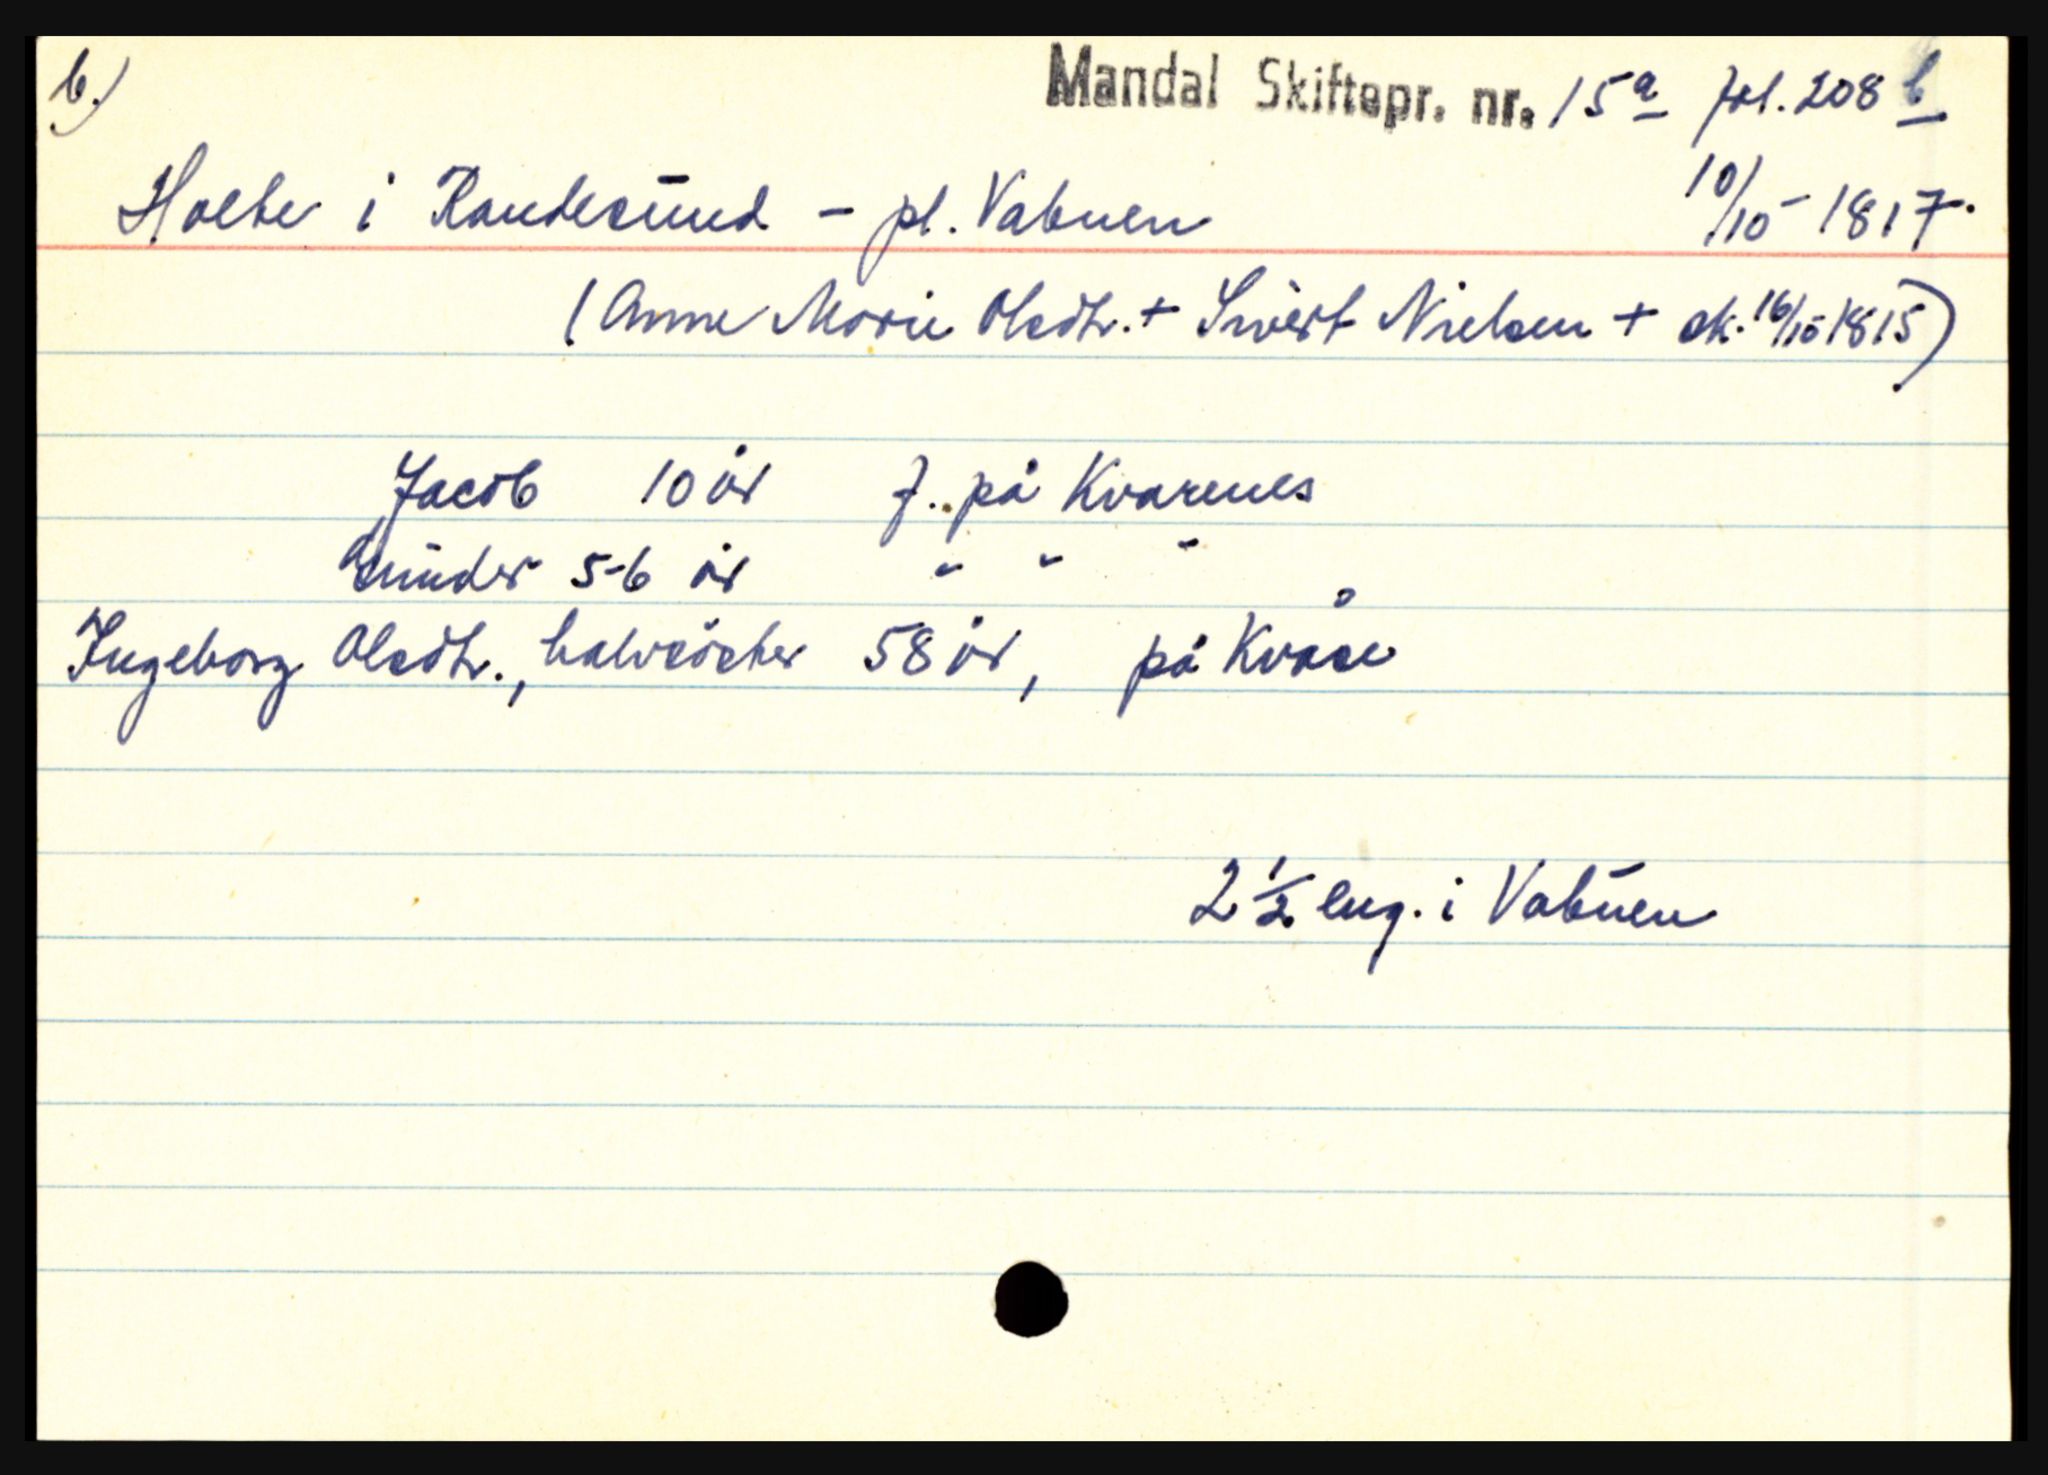 b.)
Mandal Skiftepr. nr. 15a fol. 208 b
Holte i Randesund - pl. Vabuen 10/10-1817.
(Anne Marie Olsdtr. + Sivert Nielsen + sk. 16/10 1815)
Jacob 10 år f. på Kvarenes
Gunder 5-6 år " " "
Ingeborg Olsdtr., halvsöster 58 år, på Kvåse
2 1/2 eng. i Vabuen